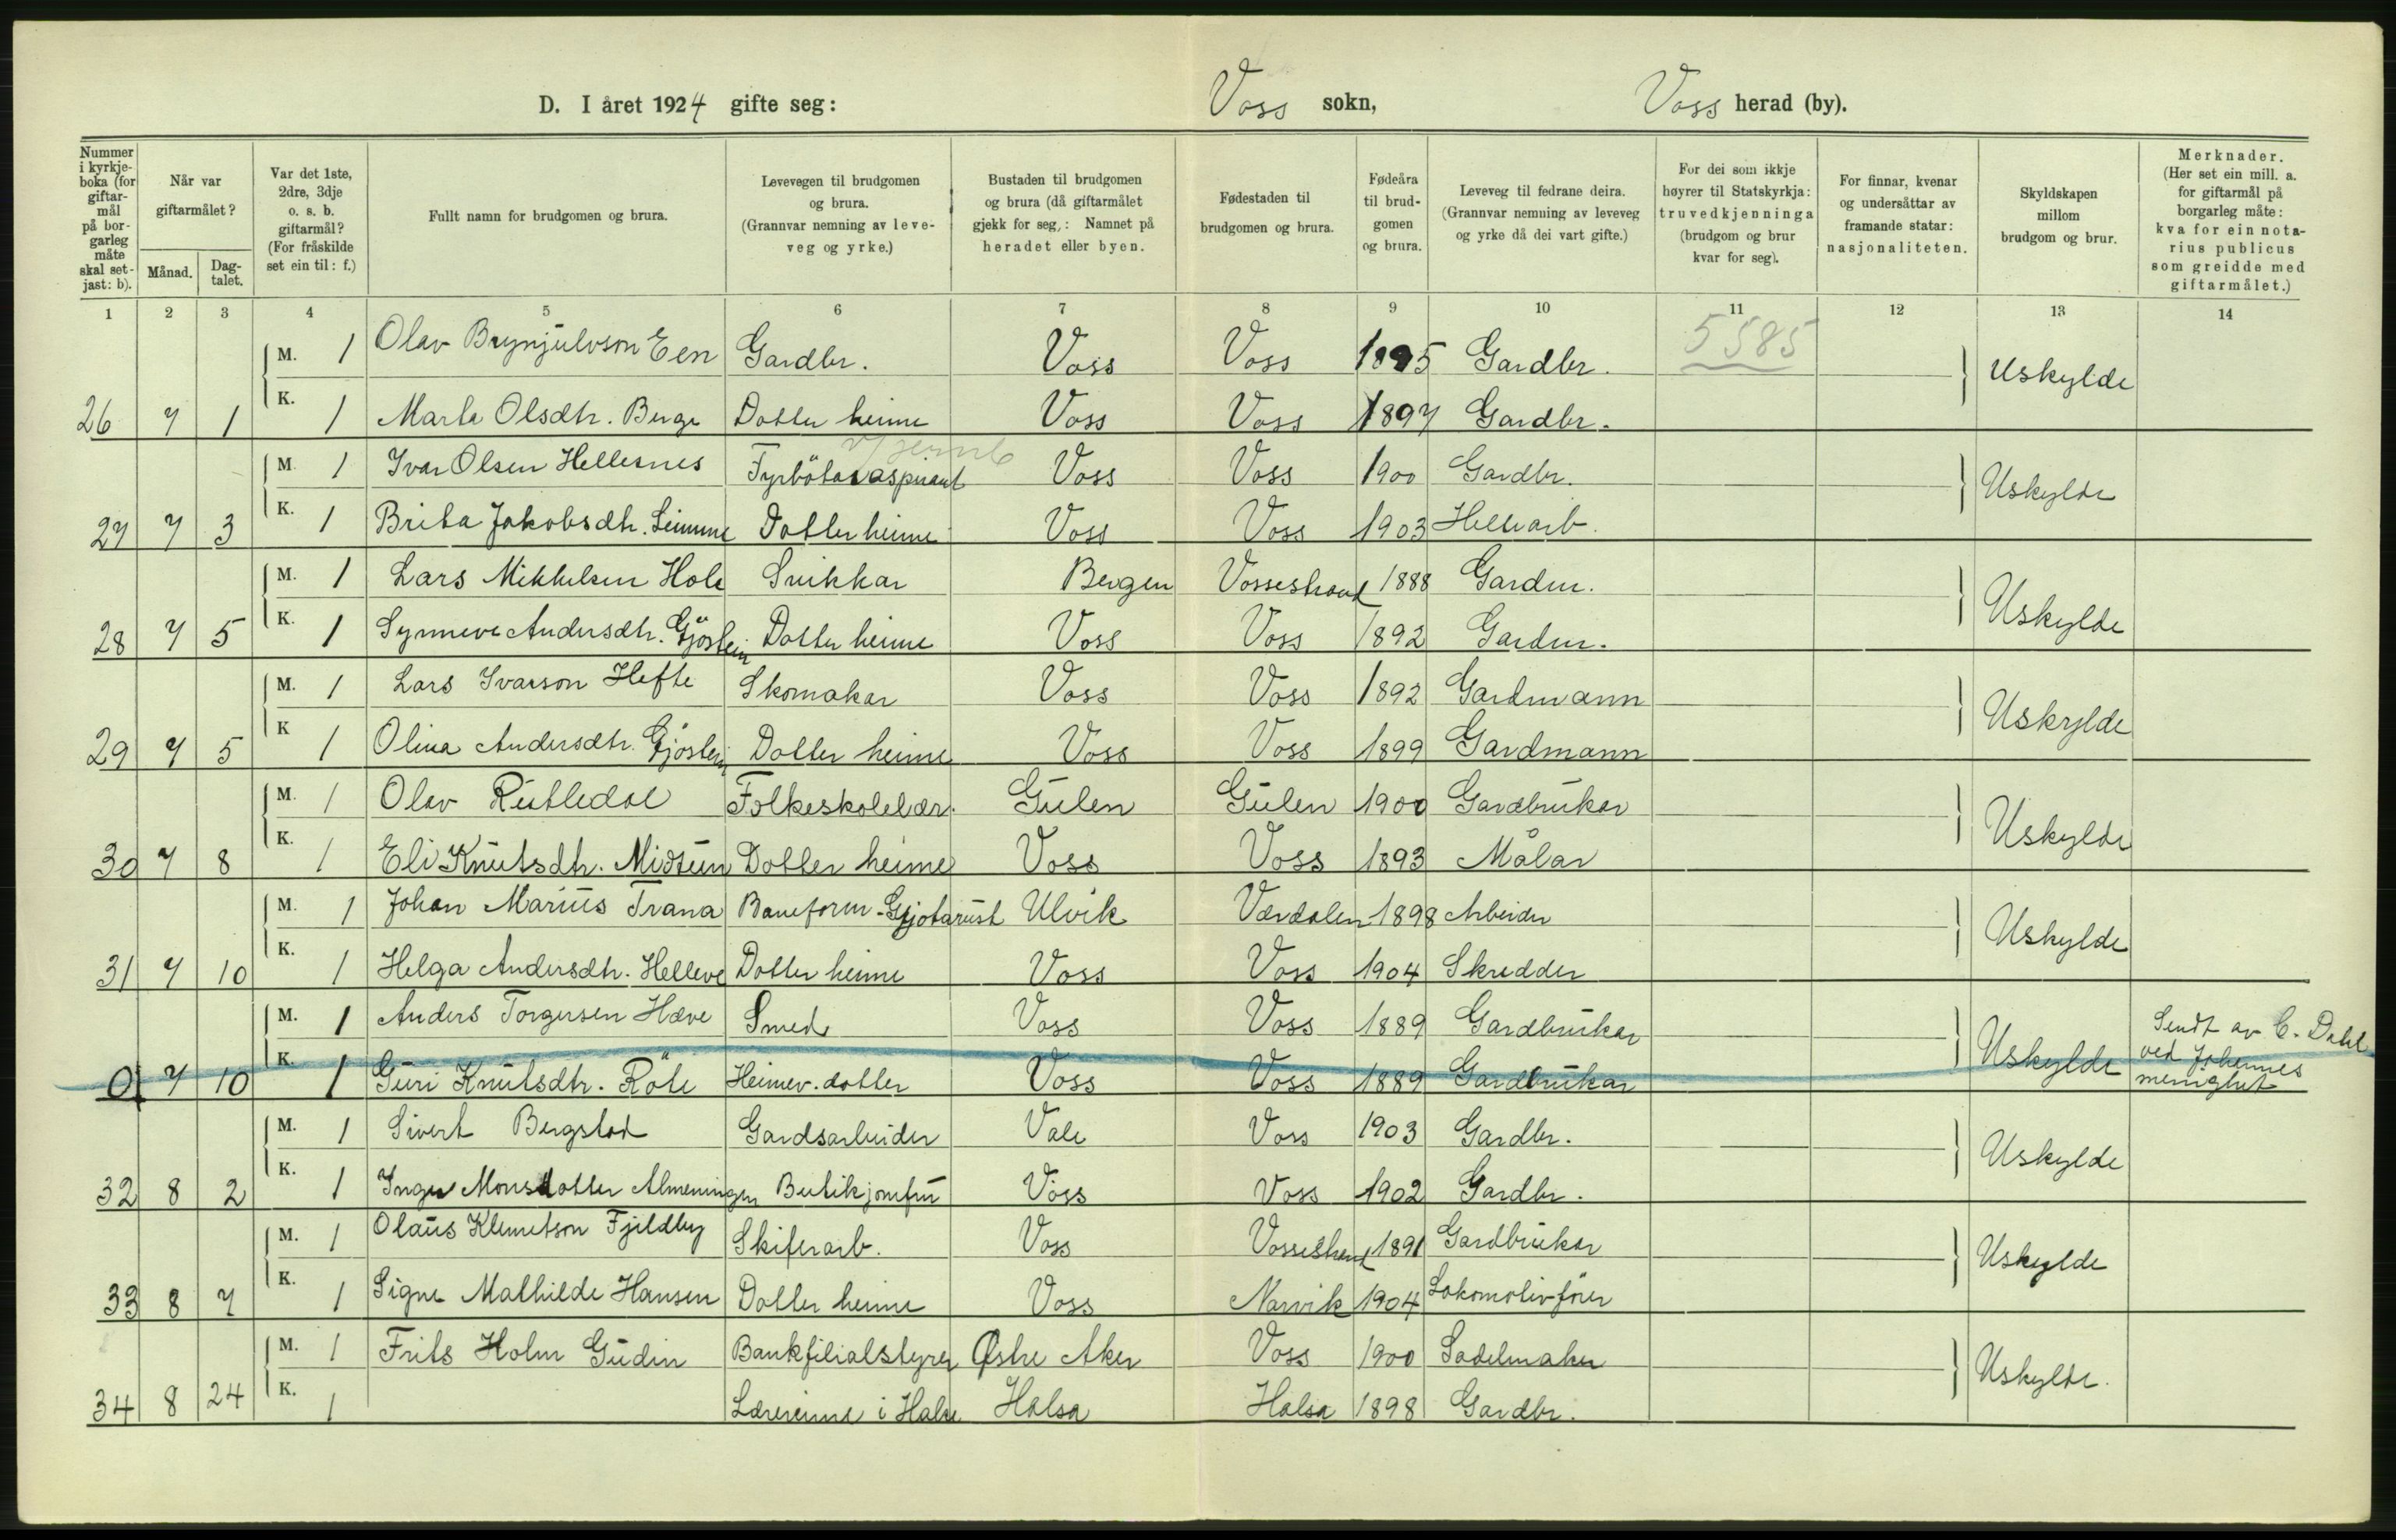 D. I året 1924 gifte seg: Voss sokn, Voss herad (by).
Nummer i kyrkje-boka (for giftar-mål på bor-garleg måte skal set-jast: b).
Når var giftarmålet?
Månad.
Dag-talet.
Var det 1ste, 2dre, 3dje o. s. b. giftarmål? (For fråskilde set ein til: f.)
Fullt namn for brudgomen og brura.
Levevegen til brudgomen og brura. (Grannvar nemning av leve-veg og yrke.)
Bustaden til brudgomen og brura (då giftarmålet gjekk for seg,: Namnet på heradet eller byen.
Fødestaden til brudgomen og brura.
Fødeåra til brud-gomen og brura.
Leveveg til fedrane deira. (Grannvar nemning av leveveg og yrke då dei vart gifte.)
For dei som ikkje høyrer til Statskyrkja: truvedkjenninga (brudgom og brur kvar for seg).
For finnar, kvenar og undersåttar av framande statar: nasjonaliteten.
Skyldskapen millom brudgom og brur.
Merknader. (Her set ein mill. a. for giftarmål på borgarleg måte: kva for ein nota-rius publicus som greidde med giftarmålet.)
1 2 3 4 5 6 7 8 9 10 11 12 13 14
5585
M. 1 Olav Brynjulvson Een Gardbr. Voss Voss 1895 Gardbr. Uskylde
26 7 1 K. 1 Marta Olsdtr. Berge Dotter heime Voss Voss 1897 Gardbr.
M. 1 Ivar Olsen Hellesnes Fyrbötaraspirant Voss Voss 1900 Gardbr. Uskylde
27 7 3 K. 1 Brita Jakobsdtr. Dotter heime Voss Voss 1903
M. 1 Lars Mikkelsen Hole Snikkar Bergen Vossestrand 1888 Gardm. Uskylde
28 7 5 K. 1 Synneve Andersdtr. Gjöstein Dotter heime Voss Voss 1892 Gardm.
M. 1 Lars Ivarson Hefte Skomakar Voss Voss 1892 Gardmann Uskylde
29 7 5 K 1 Olina Andersdtr. Gjöstein Dotter heime Voss Voss 1899 Gardmann
M. 1 Olav Rutledal Folkeskolelær. Gulen Gulen 1900 Gardbrukar Uskylde
30 7 8 K. 1 Eli Knutsdtr. Midtun Dotter heime Voss Voss 1893 Målar
M. 1 Johan Marius Trana Baneform. Gjotarust Ulvik Værdalen 1898 Arbeider Uskylde
31 7 10 K. 1 Helga Andersdtr. Helleve Dotter heime Voss Voss 1904 Skredder
M. 1 Anders Torgersen Hæve Smed Voss Voss 1889 Gardbrukar Uskylde Sendt av C. Dahl ved Johannes menighet
0 7 10 K. 1 Guri Knutsdtr. Röte Heimev. dotter Voss Voss 1889 Gardbrukar
M. 1 Sivert Bergstad Gardsarbeider Vale Voss 1903 Gardbr. Uskylde
32 8 2 K. 1 Inger Monsdotter Almeningen Butikjomfru Voss Voss 1902 Gardbr.
M. 1 Olaus Klemetson Fjeldby Skiferarb. Voss Vossestrand 1891 Gardbrukar Uskylde
33 8 7 K. 1 Signe Mathilde Hansen Dotter heime Voss Narvik 1904 Lokomotivförer
M. 1 Frits Holm Gudin Bankfilialstyrer Østre Aker Voss 1900 Sadelmaker Uskylde.
34 8 24 K. 1 Lærerinne i Halsa Halsa Halsa 1898 Gardbr.